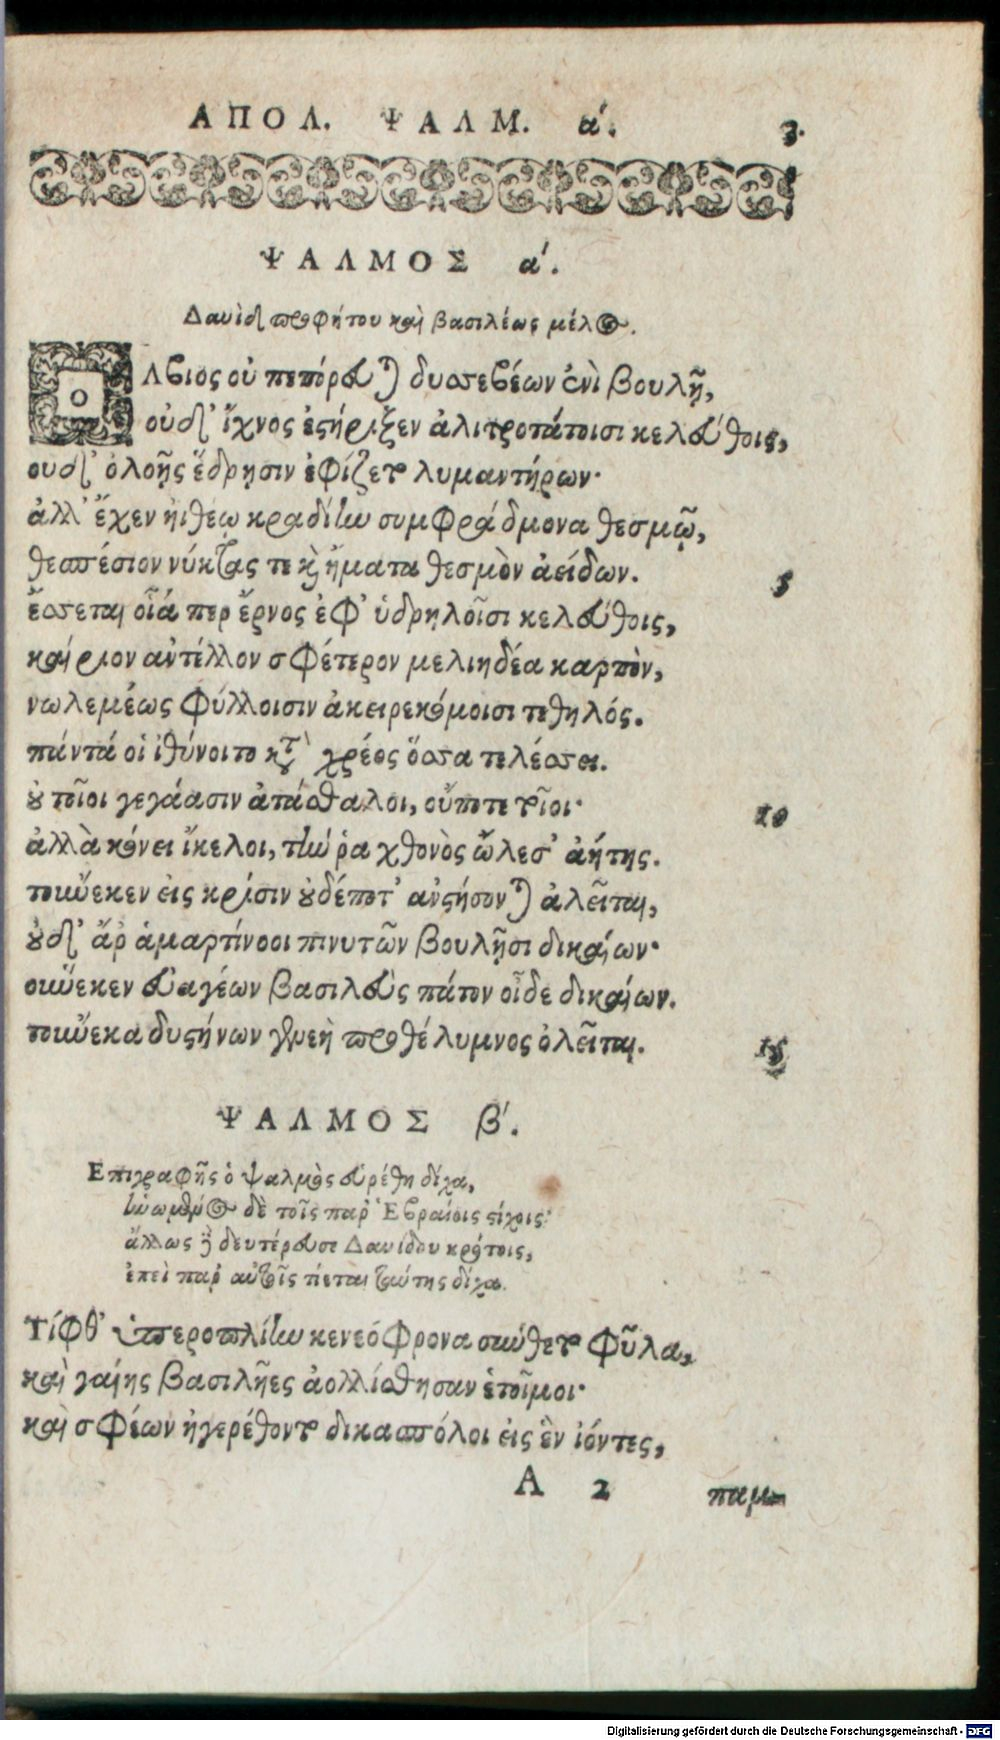 ΑΠΟΛ. ΨΑΛΜ. ά. 3.
ΨΑΛΜΟΣ ά.
Δαυὶδ προφήτου καὶ βασιλέως μέλος.
Ολβιος οὐ πεπόρευται δυσσεβέων ἐνὶ βουλῇ,
οὐδ' ἴχνος ἐστήριξεν ἀλιτροπάτοισι κελεύθοις,
ουδ' ὀλοῇς ἕδρῃσιν ἐφίζετο λυμαντήρων·
ἀλλ' ἔχεν ἠιθέῳ κραδίην συμφράδμονα θεσμῷ,
θεσπέσιον νύκτας τε καὶ ἤματα θεσμὸν ἀείδων. 5
ἔσσεται οἷά περ ἔρνος ἐφ' ὑδρηλοῖσι κελεύθοις,
καίριον ἀντέλλον σφέτερον μελιηδέα καρπὸν,
νωλεμέως φύλλοισιν ἀκειρεκόμοισι τεθηλός.
πάντά οἱ ἰθύνοιτο κατὰ χρέος ὅσσα τελέσσει.
οὐ τοῖοι γεγάασιν ἀτάσθαλοι, οὔποτε τοῖοι· 10
ἀλλὰ κόνει ἴκελοι, τὴν ῥα χθονὸς ὤλεσ' ἀήτης.
τοὔνεκεν εἰς κρίσιν οὐδέποτ' ἀνστήσονται ἀλεῖται,
οὐδ' ἄρ ἁμαρτίνοοι πινυτῶν βουλῇσι δικαίων·
οὕνεκεν εὐαγέων βασιλεὺς πάτον οἶδε δικαίων.
τοὔνεκα δυστήνων γενεὴ προθέλυμνος ὀλεῖται. 15
ΨΑΛΜΟΣ β΄.
Επιγραφῆς ὁ ψαλμὸς εὑρέθη δίχα,
ἡνωμένος δὲ τοῖς παρ' Ἑβραίοις στίχοις·
ἄλλως δευτέρευσε Δαυίδου κρότοις,
ἐπεὶ παρ αὐτοῖς τίεται ταύτης δίχα.
Τίφθ' ὑπεροπλίην κενεόφρονα σύνθετο φῦλα,
καὶ γαίης βασιλῆες ἀολλίσθησαν ἑτοῖμοι·
καὶ σφέων ἠγερέθοντο δικασπόλοι εἰς ἓν ἰόντες,
A 2 παμ-
Digitalisierung gefördert durch die Deutsche Forschungsgemeinschaft - DFG